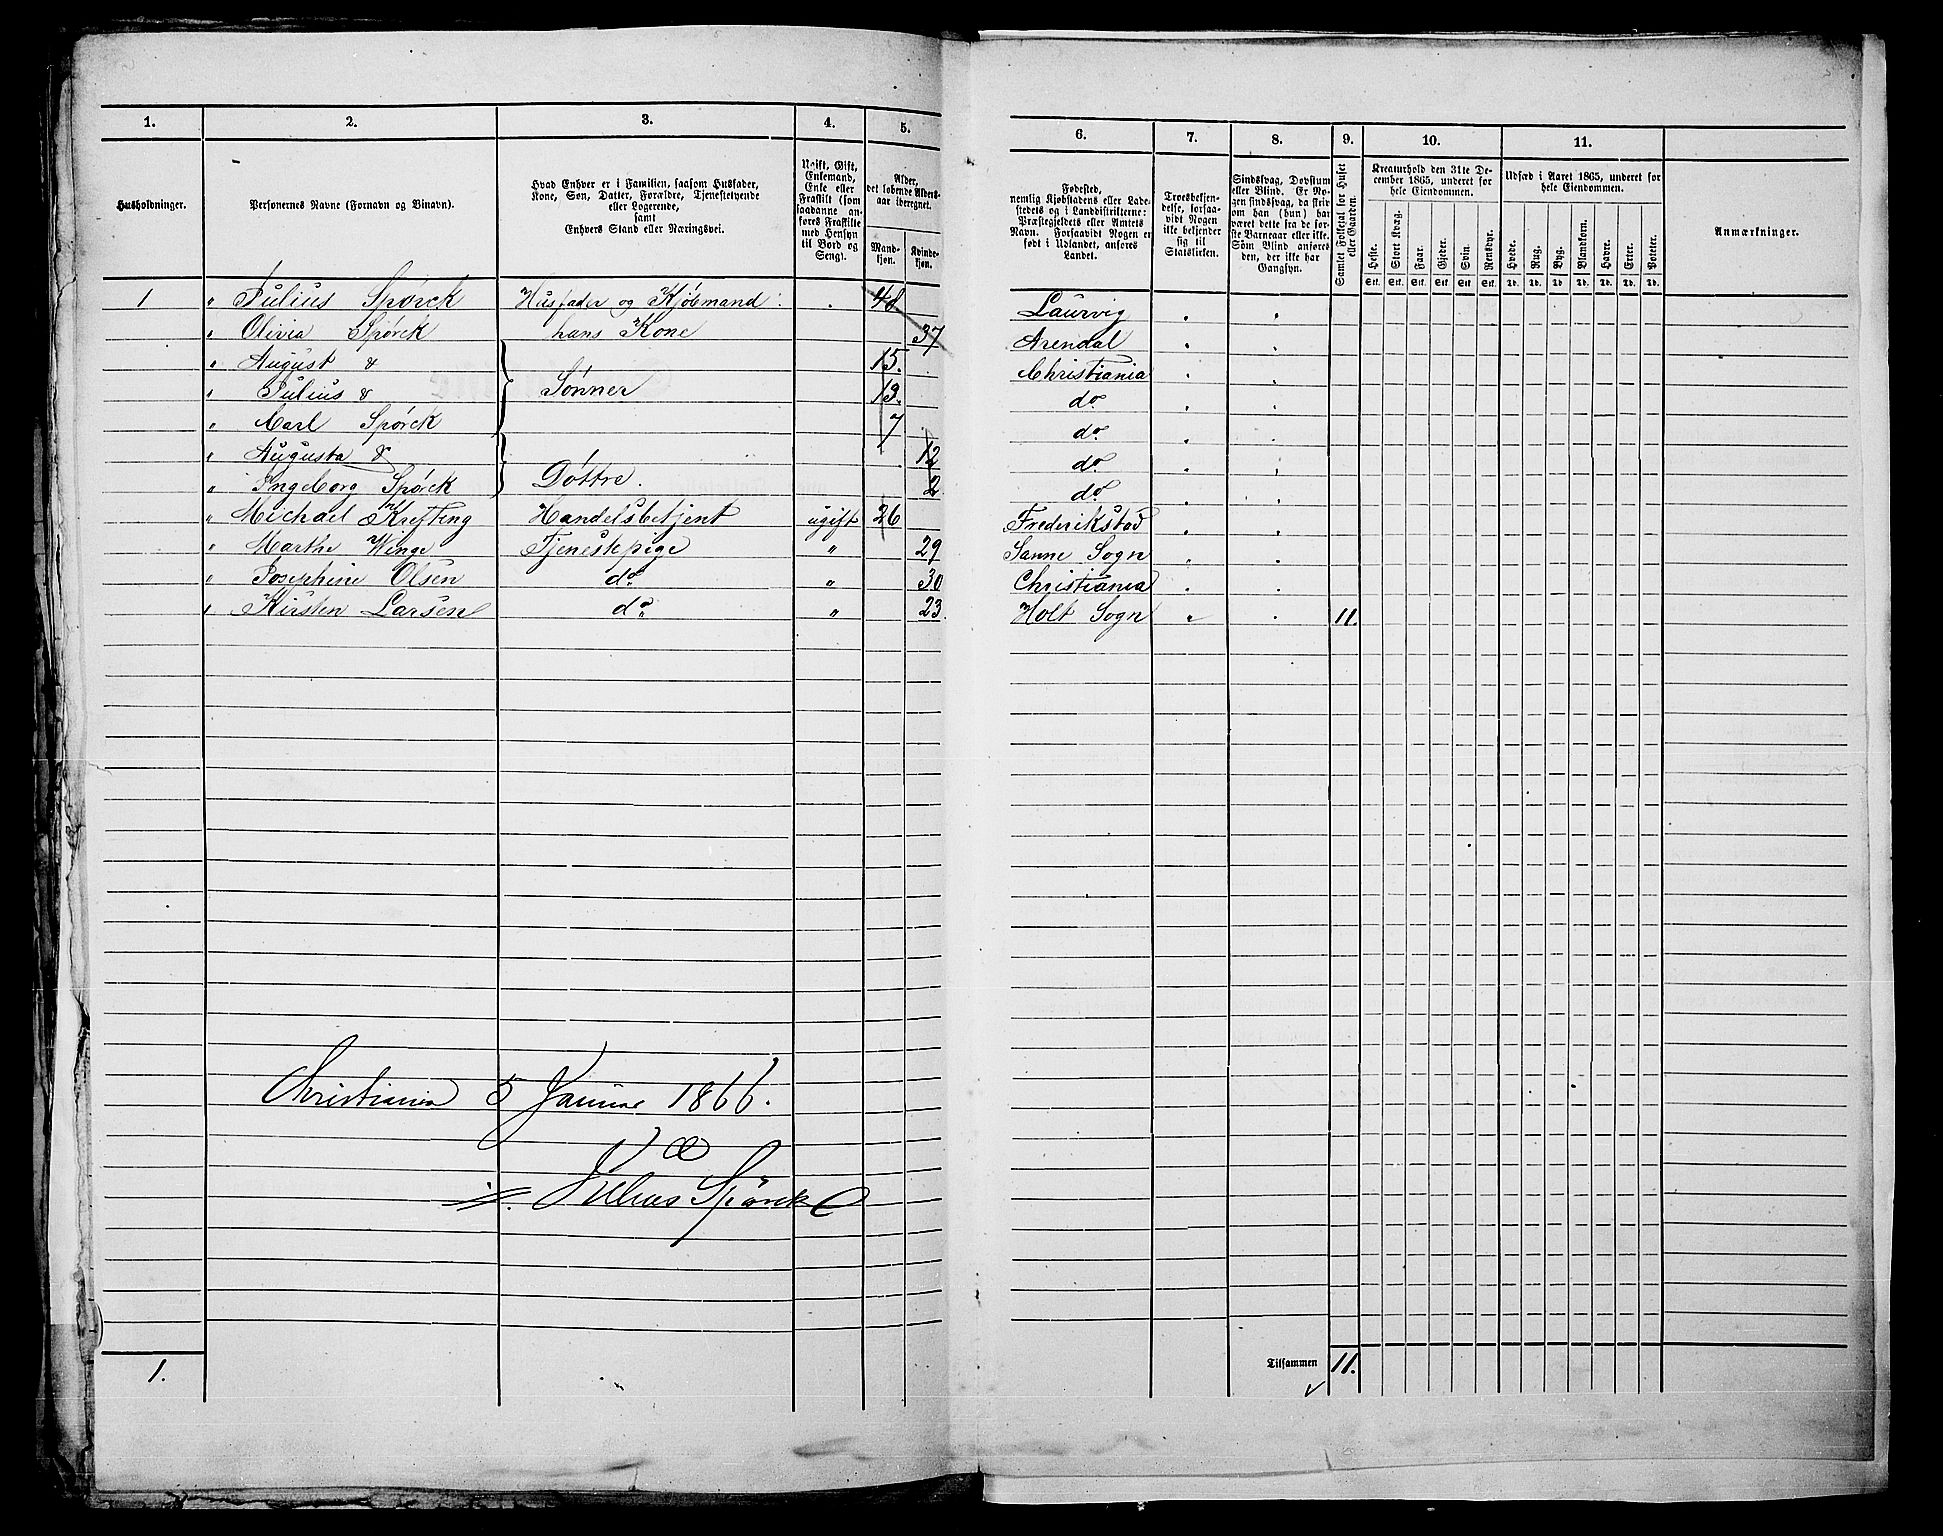 1. 2. 3. 4. 5. 6. 7. 8. 9. 10. 11.
Husholdninger.
Personernes Navne (Fornavn og Binavn).
Hvad Enhver er i Familien, saasom Husfader,
Kone, Søn, Datter, Forældre, Tjenestetyende
eller Logerende,
samt
Enhvers Stand eller Næringsvei.
Ugift, Gift,
Enkemand,
Enke eller
Fraskilt (som
saadanne an-
føres Fraskilte
med Hensyn
til Bord og
Seng).
Alder,
det løbende Alders-
aar iberegnet.
Mand-
kjøn.
Kvinde-
kjøn.
Fødested,
nemlig Kjøbstadens eller Lade-
stedets og i Landdistrikterne:
Præstegjeldets eller Amtets
Navn. Forsaavidt Nogen er
født i Udlandet, anføres
Landet.
Troesbekjen-
delse, forsaa-
vidt Nogen
ikke bekjender
sig til
Statskirken.
Sindssvag, Døvstum
eller Blind. Er No-
gen sindssvag, da skriv
om han (hun) har
været dette fra de før-
ste Barneaar eller ikke.
Som Blind anføres
den, der ikke har
Gangsyn.
Samlet Folketal for Huset
eller Gaarden.
Kreaturhold den 31te De-
cember 1865, anført for
hele Eiendommen.
Heste. Stort Kvæg. Faar. Gjeder. Svin. Rensdyr.
Stk. Stk. Stk. Stk. Stk. Stk.
Udsæd i Aaret 1865, anført for
hele Eiendommen.
Hvede. Rug. Byg. Blandkorn. Havre. Erter. Poteter.
Td. Td. Td. Td. Td. Td. Td.
Anmærkninger.
1 " Julius Spørck Husfader og Kjøbmand . 48 Laurvig
" Olivia Spørck hans Kone 37 Arendal
" August & 15. Christiania
" Julius & Sønner 13. do
" Carl Spørck 7 do
" Augusta & 12 do
" Ingeborg Spørck Døttre. 2 do
" Michael Krefting Handelsbetjent ugift 26 Frederikstad
" Marthe Winge Tjenestepige " 29 Sanne Sogn
" Josephine Olsen do " 30 Christiania
" Kirsten Larsen do " 23 Holt Sogn " 11.
Christiania 5 Januar 1866.
Julius Spørck
1. Tilsammen 11.